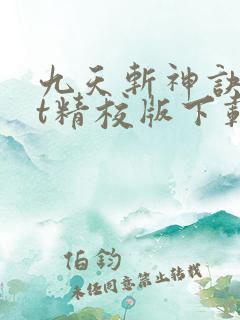 九天斬神訣
t精校版下載
伯鈞
未任同意禁止轉載